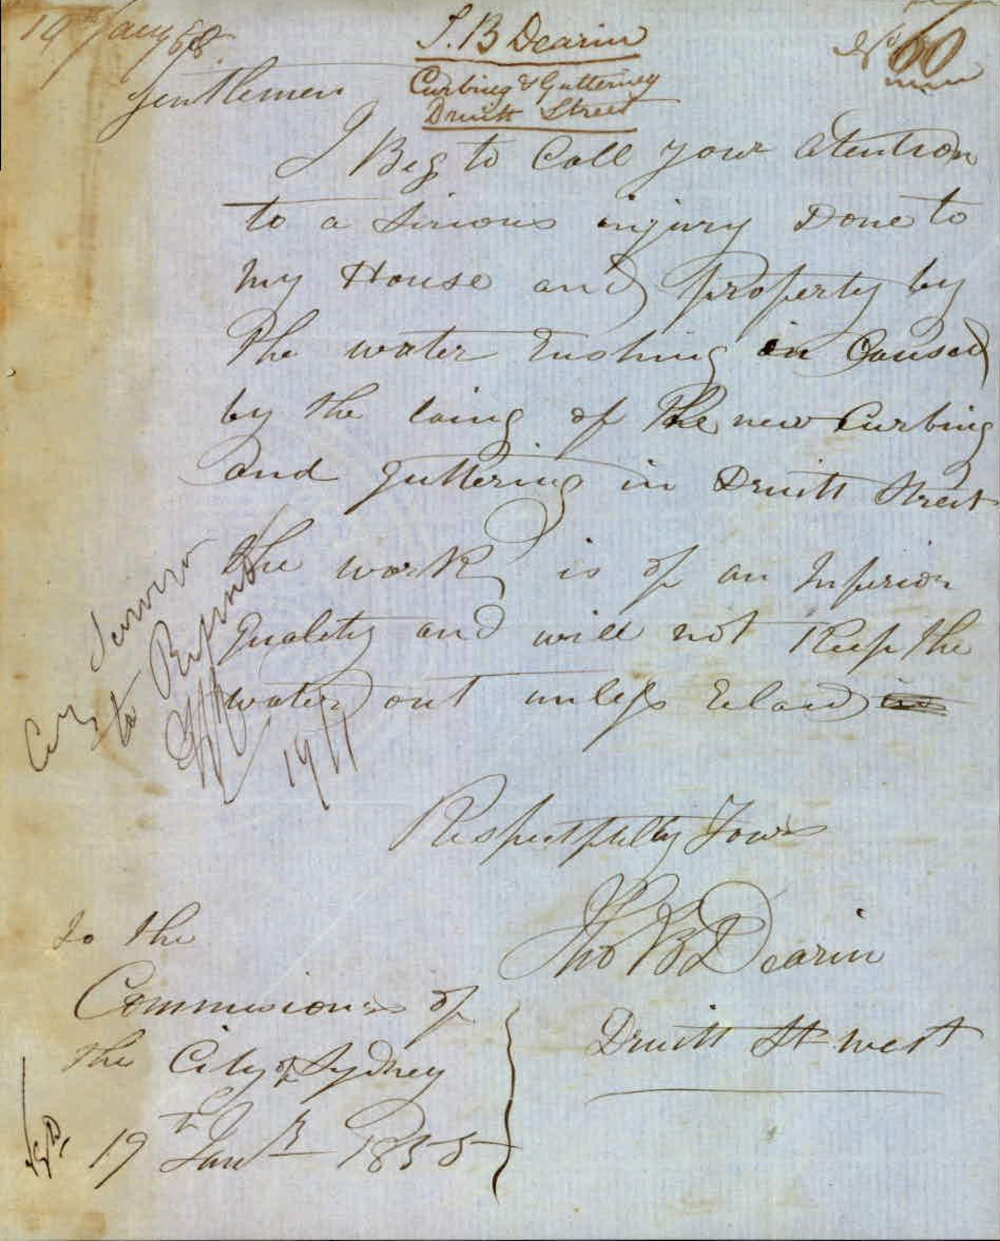 19th Jany 58
T. B Dearin
No 60
Curbing & Guttering
Druitt Street
Gentlemen
I Beg to Call Your Atention
to a Sirious injury Done to
my House and Property by
The water Rushing in Caused
by the laing of The new Curbing
and guttering in Druitt Street
the work is of an Inferior
Quality and will not Keep the
water out unless Relaid
City Surveyor
to Report
19/1
Respectfully Yours
Tho B Dearin
Druitt St West
To the
Commisioners of
the City of Sydney
19th Jany 1858